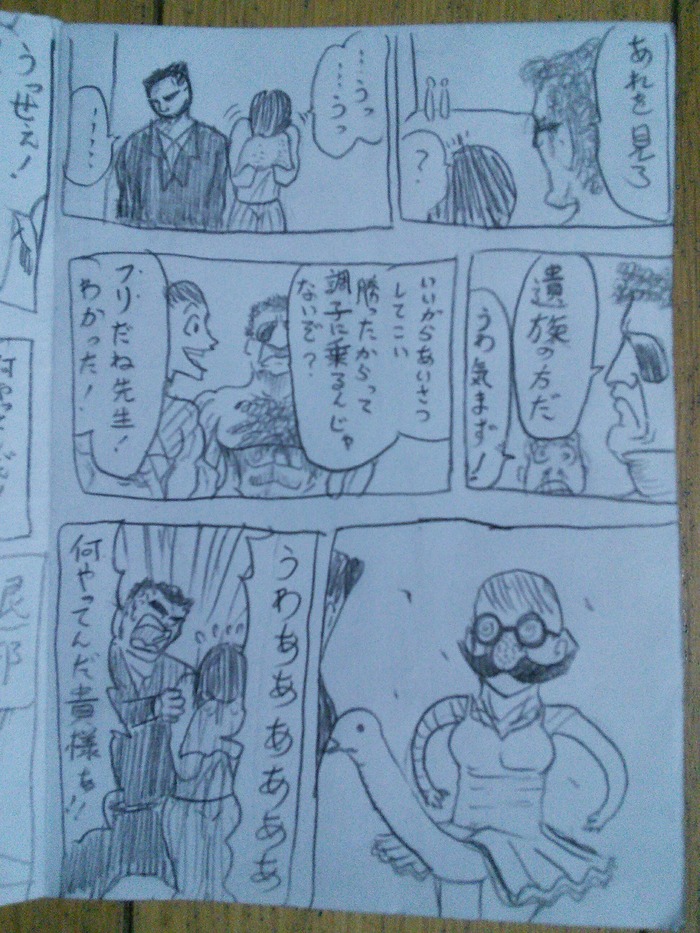 あれを見ろ
?
……うっ
……うっ
……
遺族の方だ
うわ気まず!
いいからあいさつ
してこい
勝ったからって
調子に乗るんじゃ
ないぞ?
フリだね先生!
わかった!
うわぁぁぁぁぁぁ
何やってんだ貴様ぁ!!
うっせぇ!